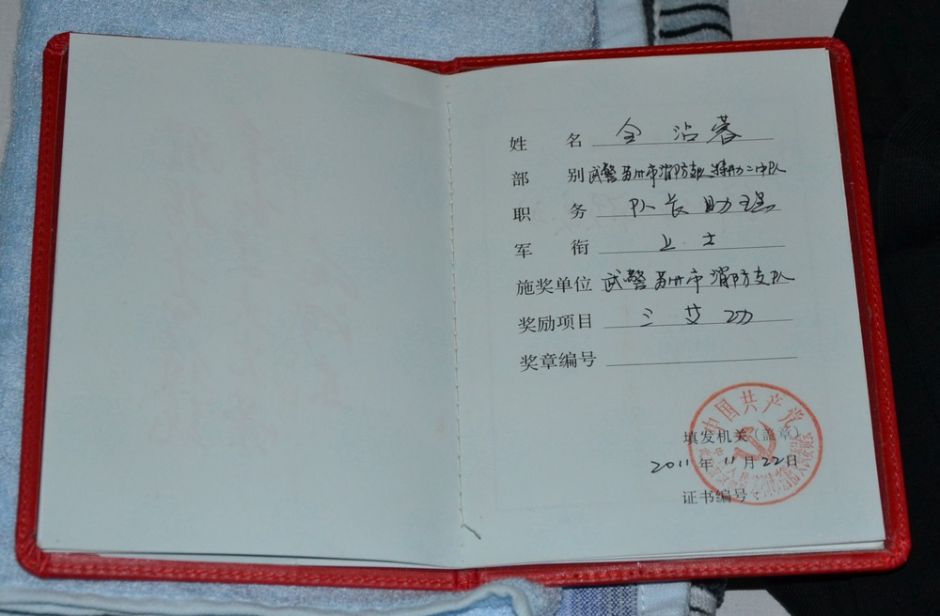 姓名 金沾蓉
部别 武警苏州市消防支队特勤二中队
职务 队长助理
军衔 上士
施奖单位 武警苏州市消防支队
奖励项目 三等功
奖章编号
中国共产党
填发机关（盖章）
2011年11月22日
证书编号：